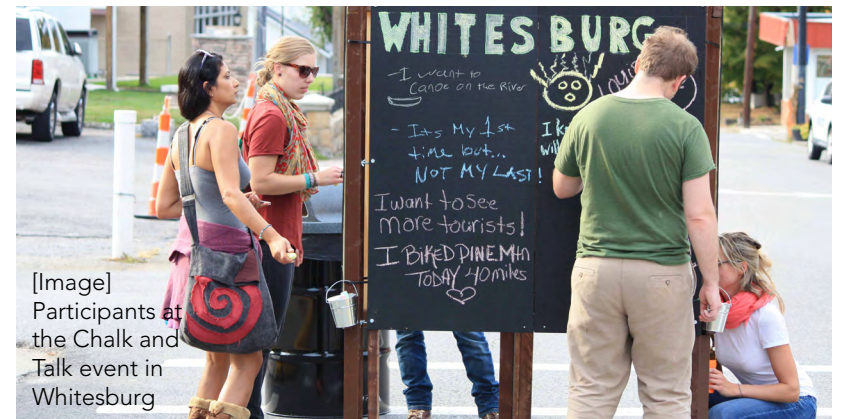 WHITESBURG
- I want to
Canoe on the River
- Its My 1st
time but...
NOT MY LAST!
I want to see
more tourists!
I BIKED PINE Mtn
TODAY 40 miles
Loui
I k
will
[Image]
Participants at
the Chalk and
Talk event in
Whitesburg